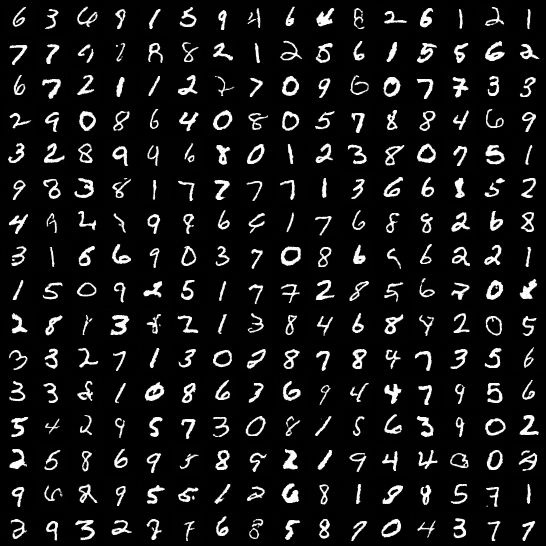 6 3 6 9 1 5 9 4 6 8 2 6 1 2 1
7 7 9 8 8 2 1 2 5 6 1 5 5 6 2
6 7 2 1 1 2 7 7 0 9 6 0 7 7 3 3
2 9 0 8 6 4 0 8 0 5 7 8 8 4 6 9
3 2 8 9 9 6 8 0 1 2 3 8 0 7 5 1
9 8 3 8 1 7 7 7 7 1 3 6 6 8 5 2
4 9 2 9 8 6 6 1 7 6 8 8 2 6 8
3 1 6 6 9 0 3 7 0 8 6 5 6 2 2 1
1 5 0 9 2 5 1 7 7 2 8 5 6 7 0
2 8 1 3 8 2 1 3 8 4 6 8 9 2 0 5
3 3 2 7 1 3 0 2 8 7 8 4 7 3 5 6
3 3 2 1 0 8 6 3 6 9 4 4 7 9 5 6
5 4 2 9 5 7 3 0 8 1 5 6 3 9 0 2
2 5 8 6 9 5 8 9 2 1 9 4 4 0
9 6 8 9 5 5 1 2 6 8 1 8 8 5 7 1
2 9 3 2 7 7 6 8 5 8 7 0 4 3 7 7